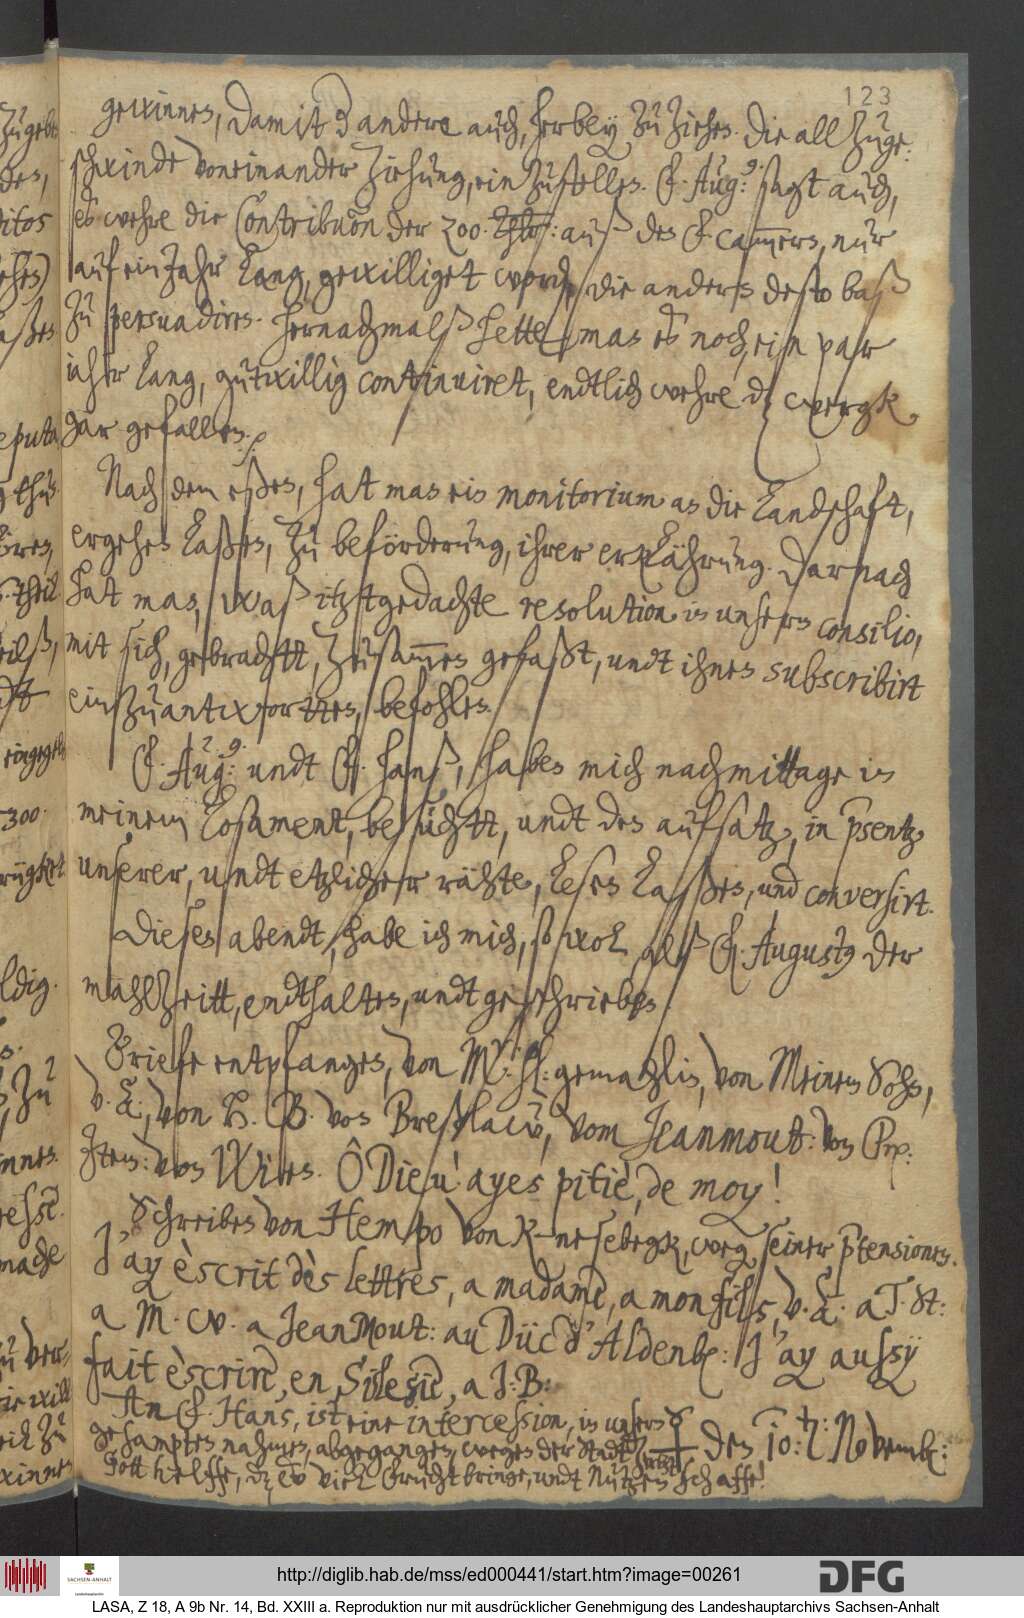 123
gewinnen, damit d andere auch, herbey zu ziehen. Die all zuge-
schwinde voneinander ziehung, ein zustellen. F. Aug: sagt auch,
es wehre die Contribuon der 200 Thlr: auß der F. cammern, nur
auf ein Jahr lang, gewilliget worden, die andern desto baß
zu persuadiren. Hernachmalß hette man es noch, ein par
iahr lang, gutwillig continuiret, endtlich wehre dz wergk
gar gefallen.
Nach dem eßen, hat man ein monitorium an die Landschaft,
ergehen laßen, zu beförderung, ihrer erklährung. Darnach
hat man, waß itztgedachte resolution in unserm consilio,
mit sich, gebrachtt, zusammen gefaßt, undt ihnen subscribirt
einzuantwortten, befohlen.
F. Aug: undt F. Hanß, haben mich nachmittage in
meinem Losament, besuchtt, undt den aufsatz, in psentz
unserer, undt etzlicher rähte, lesen laßen, und conversirt.
Diesen abendt, habe ich mich, so wol, alß F. Augusty der
mahlzeitt, endthalten, undt geschrieben.
Briefe entpfangen, von M: hl: gemahlin, von Meinem Sohn,
v. L., von H. B. von Breßlaw, vom Jeanmout: von Pr:
Item: von Wien. Ô Dieu! ayes pitiè, de moy!
Schreiben von Hempo von K-nesebegk, weg. seiner ptensionen.
J'ay èscrit dès lettres, a madame, a mon fils, v. L: a T. St:
a M. W. a JeanMout: au Düc d'Aldenb: J'ay aussy
fait èscrire, en Silesie, a J: B:
An F. Hans, ist eine intercession, in unserm
gesampten nahmen, abgegangen, wegen der Stadt
Gott helffe, dz es viel frucht bringe, undt Nutzen schaffe!
den 10: Novemb:
http://diglib.hab.de/mss/ed000441/start.htm?image=00261
DFG
SACHSEN-ANHALT
LASA, Z 18, A 9b Nr. 14, Bd. XXIII a. Reproduktion nur mit ausdrücklicher Genehmigung des Landeshauptarchivs Sachsen-Anhalt